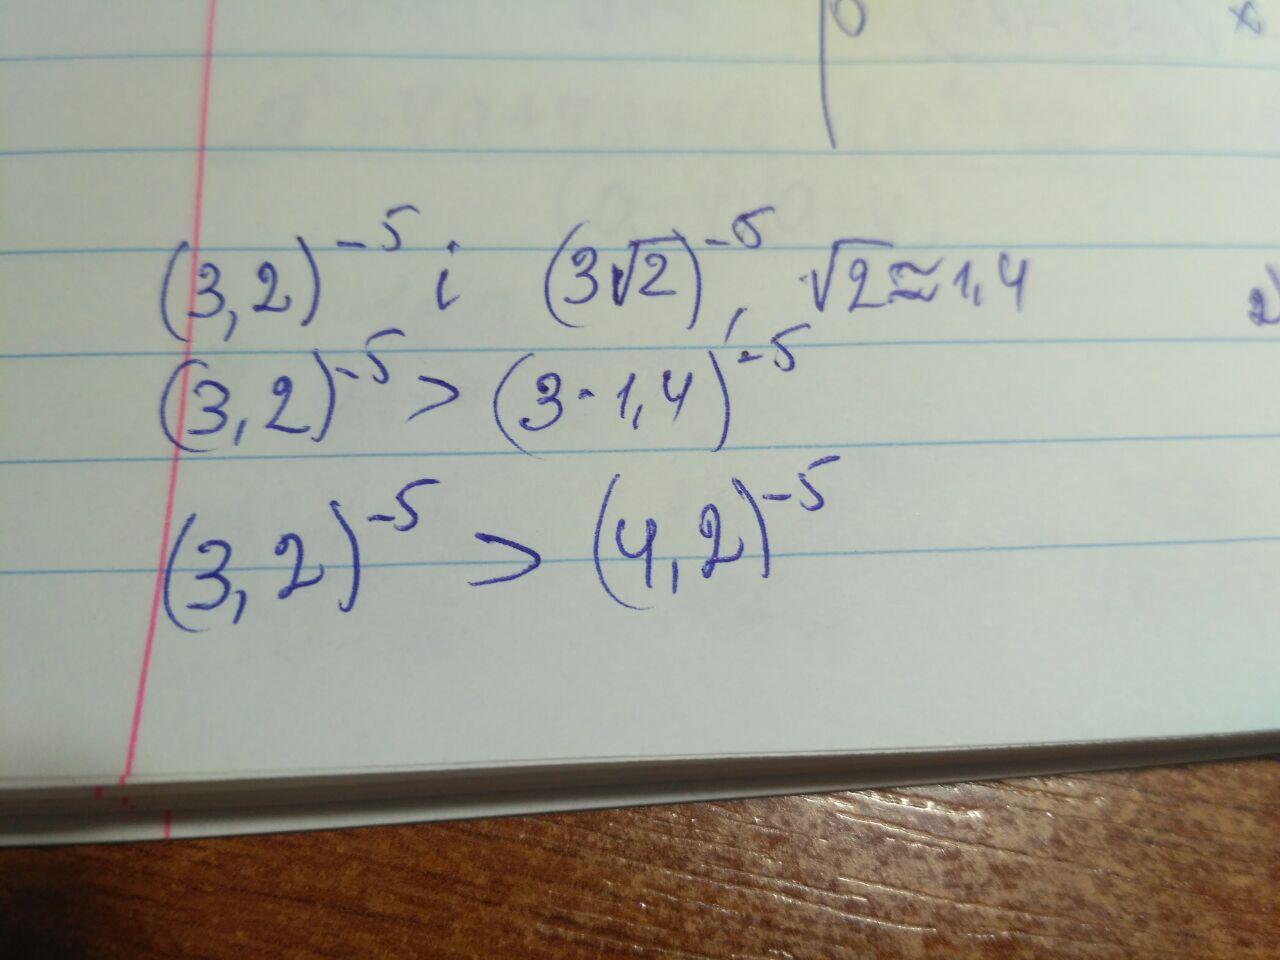 0 x
(3,2)^{-5} і (3√2)^{-5}, √2≈1,4
2)
(3,2)^{-5} > (3·1,4)^{-5}
(3,2)^{-5} > (4,2)^{-5}